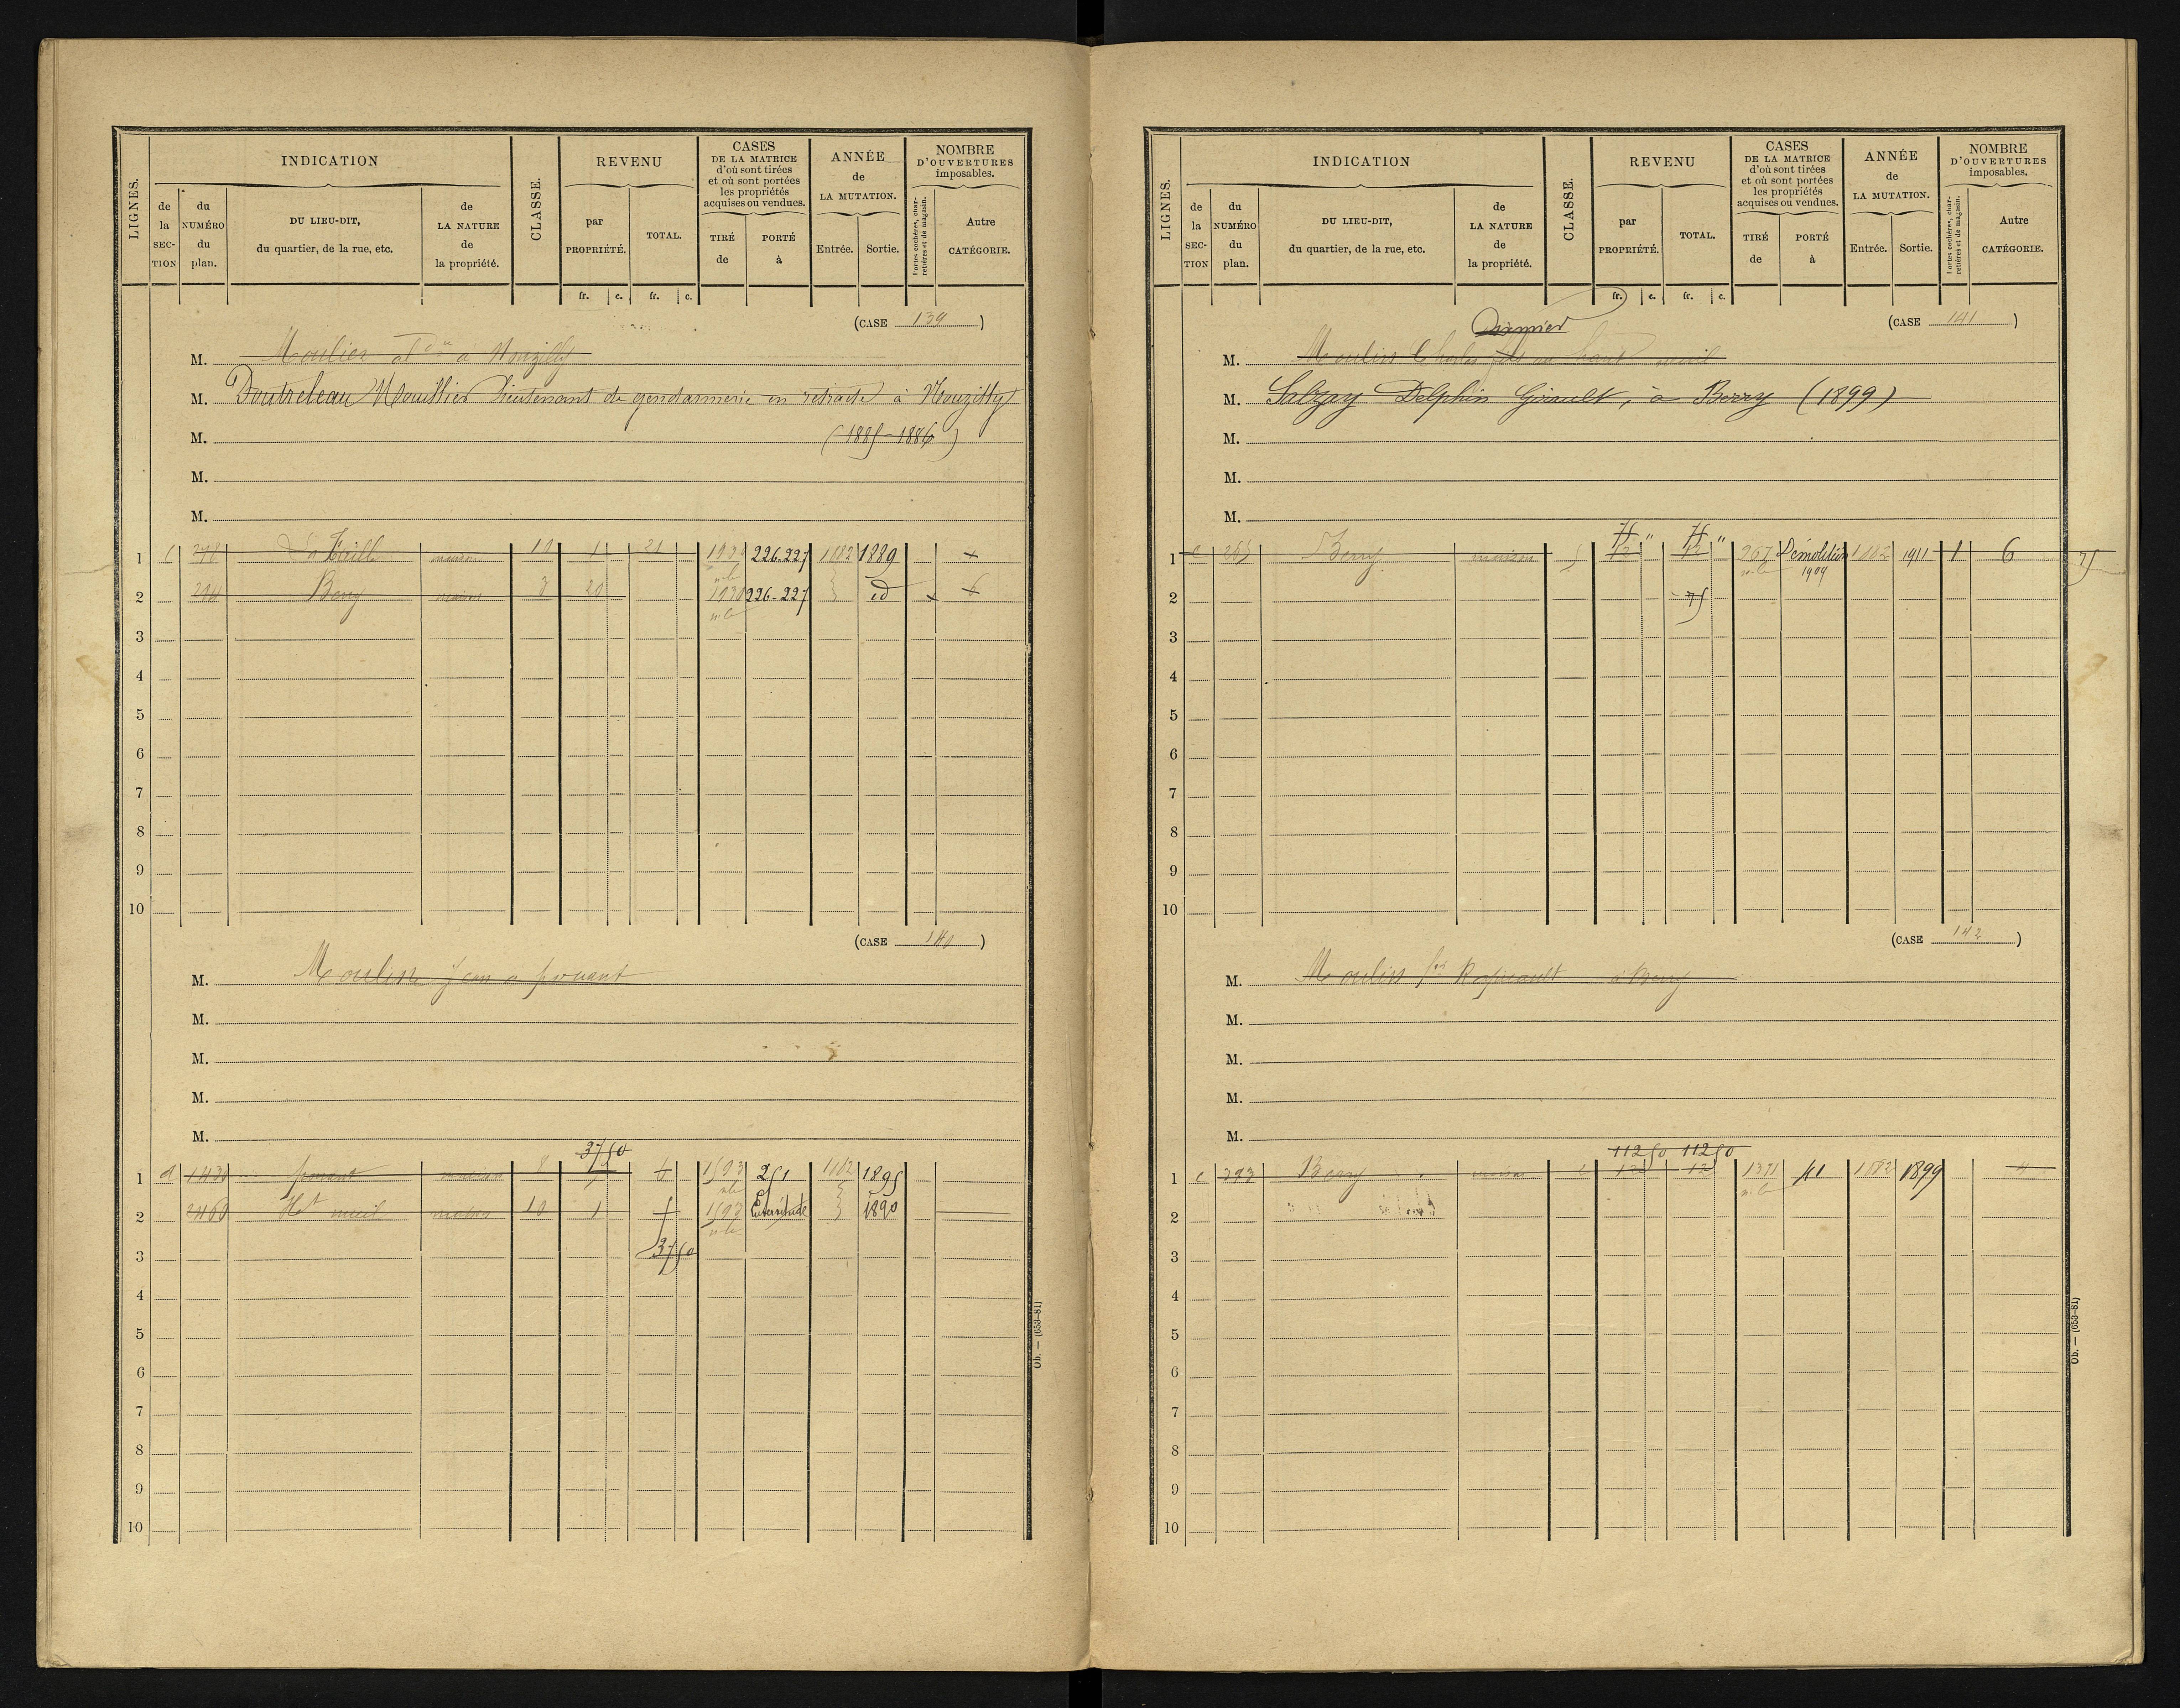 LIGNES.
INDICATION
de la SEC-TION
du NUMÉRO du plan.
DU LIEU-DIT, du quartier, de la rue, etc.
de LA NATURE de la propriété.
CLASSE.
REVENU
par PROPRIÉTÉ.
TOTAL.
fr. c. fr. c.
CASES DE LA MATRICE d'où sont tirées et où sont portées les propriétés acquises ou vendues.
TIRÉ de
PORTÉ à
ANNÉE de LA MUTATION.
Entrée. Sortie.
NOMBRE D'OUVERTURES imposables.
Portes cochères, charretières et de magasin.
Autre CATÉGORIE.
(CASE 139)
M. à Nouzilly
M. Doutreleau Mouillier Lieutenant de gendarmerie en retraite à Nouzilly
M. (1885-1886)
M.
M.
1 298 maison 10 1 21 226-227 1882 1889
2 Berry maison 8 20 226-227 id 6
3
4
5
6
7
8
9
10
(CASE 140)
M. Moulin Jean a pouant
M.
M.
M.
M.
37 50
1 d 1430 pouant maison 8 1593 251 1882 1895
2 2460 Ht mueil maison 10 1 1593 1890
3 37 50
4
5
6
7
8
9
10
Ob. — (653-81)
LIGNES.
INDICATION
de la SEC-TION
du NUMÉRO du plan.
DU LIEU-DIT, du quartier, de la rue, etc.
de LA NATURE de la propriété.
CLASSE.
REVENU
par PROPRIÉTÉ.
TOTAL.
fr. c. fr. c.
CASES DE LA MATRICE d'où sont tirées et où sont portées les propriétés acquises ou vendues.
TIRÉ de
PORTÉ à
ANNÉE de LA MUTATION.
Entrée. Sortie.
NOMBRE D'OUVERTURES imposables.
Portes cochères, charretières et de magasin.
Autre CATÉGORIE.
(CASE 141)
M. Moulin Charles au haut mueil
M. Salzay Delphin Girault, à Berry (1899)
M.
M.
M.
75 " 75 "
1 c 265 Berry maison 5 12 12 267 Démolition 1909 1882 1911 1 6 75
2 75
3
4
5
6
7
8
9
10
(CASE 142)
M. Moulin à Berry
M.
M.
M.
M.
112 50 112 50
1 c 293 Berry maison 12 12 41 1882 1899 4
2
3
4
5
6
7
8
9
10
Ob. — (653-81)